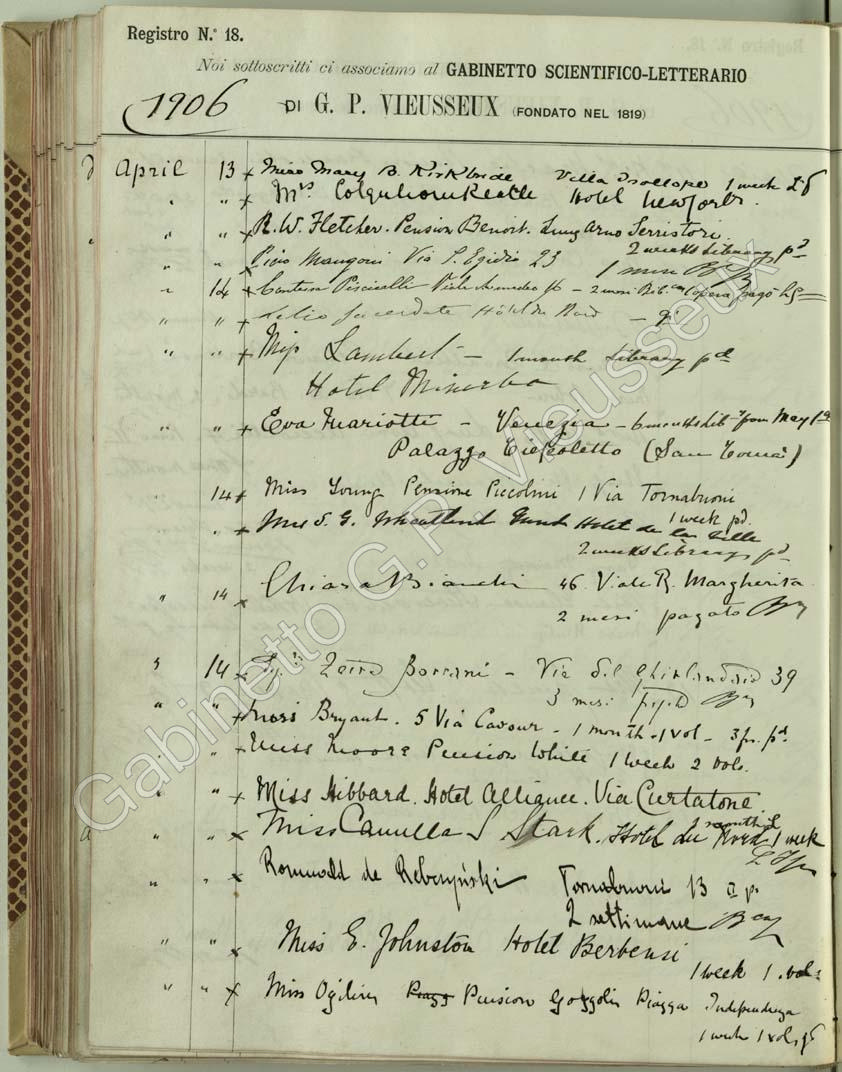 Registro N.° 18.
Noi sottoscritti ci associamo al GABINETTO SCIENTIFICO-LETTERARIO
1906 DI G. P. VIEUSSEUX (FONDATO NEL 1819)
April 13 x Miss Mary B. Kirkbride Villa 1 week
" " x Mrs Hotel
" " x R. W. Fletcher. Pension Benoit. Lung Arno Serristori.
2 weeks Library pd
" " x Mangoni Via S. Egidio 23
1 mese
" 14 x Viale Amedeo - 2 mesi pagò
" " x Hôtel du Nord
" " x Miss Lambert - 1 month Library pd
Hotel Minerba
" " x Eva Mariotti - Venezia - 6 months Liby from May 1st
Palazzo (San Tomà)
14 x Miss Young Pensione Piccolini 1 Via Tornabuoni
1 week pd.
" x Mrs S. G. Wheatland Hotel de la Ville
2 weeks Library pd
" 14 x Chiara Bianchi 46. Viale R. Margherita
2 mesi pagato
" 14 x Borrani - Via del Ghirlandaio 39
3 mesi
" " x Miss Bryant. 5 Via Cavour - 1 month - 1 vol - 3 fr. pd
" " x Miss Moore Pension White 1 week 2 vols.
" " x Miss Hibbard. Hotel Alliance. Via Curtatone.
" " x Miss Camilla S Stark. Hotel du Nord 1 week
" " x Romuald de Rebczyński Tornabuoni 13 II p.
2 settimane
" " x Miss E. Johnston Hotel Berbensi
1 week 1 vol:
" " x Miss Ogilvy Pension Piazza Independenza
1 week 1 vol,
Gabinetto G.P. Vieusseux